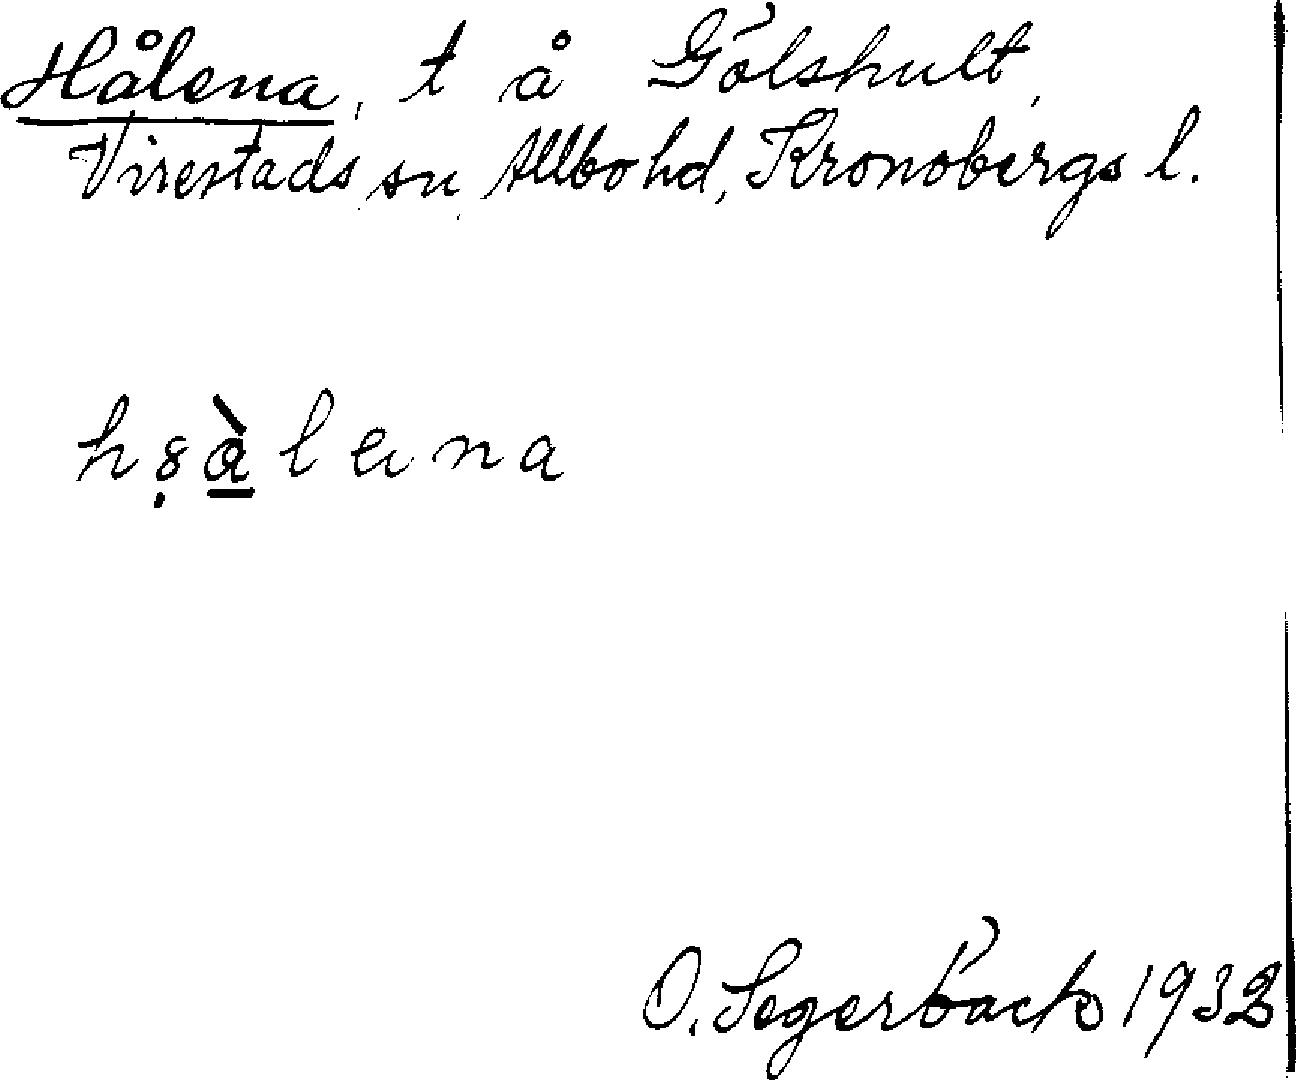 Hålena, t å Gölshult,
Virestads sn, Allbo hd, Kronobergs l.
O. Segerbäck 1932